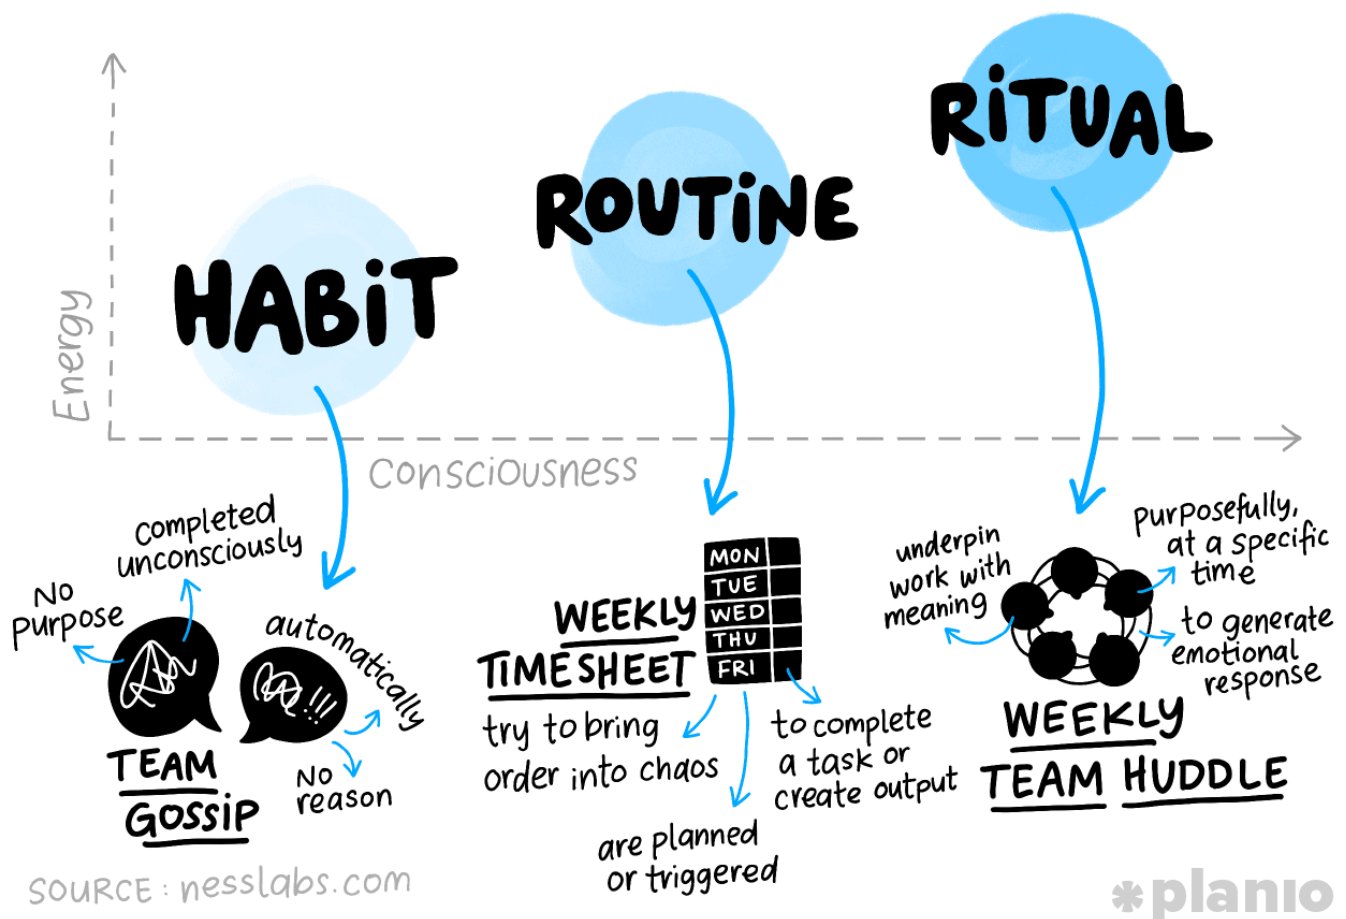 RiTUAL
ROUTiNE
HABiT
Energy
Consciousness
completed
unconsciously
No
purpose
automatically
No
reason
TEAM
GOSSIP
MON
TUE
WED
THU
FRI
WEEKLY
TIMESHEET
try to bring
order into chaos
are planned
or triggered
to complete
a task or
create output
underpin
work with
meaning
purposefully,
at a specific
time
to generate
emotional
response
WEEKLY
TEAM HUDDLE
SOURCE: nesslabs.com
planio